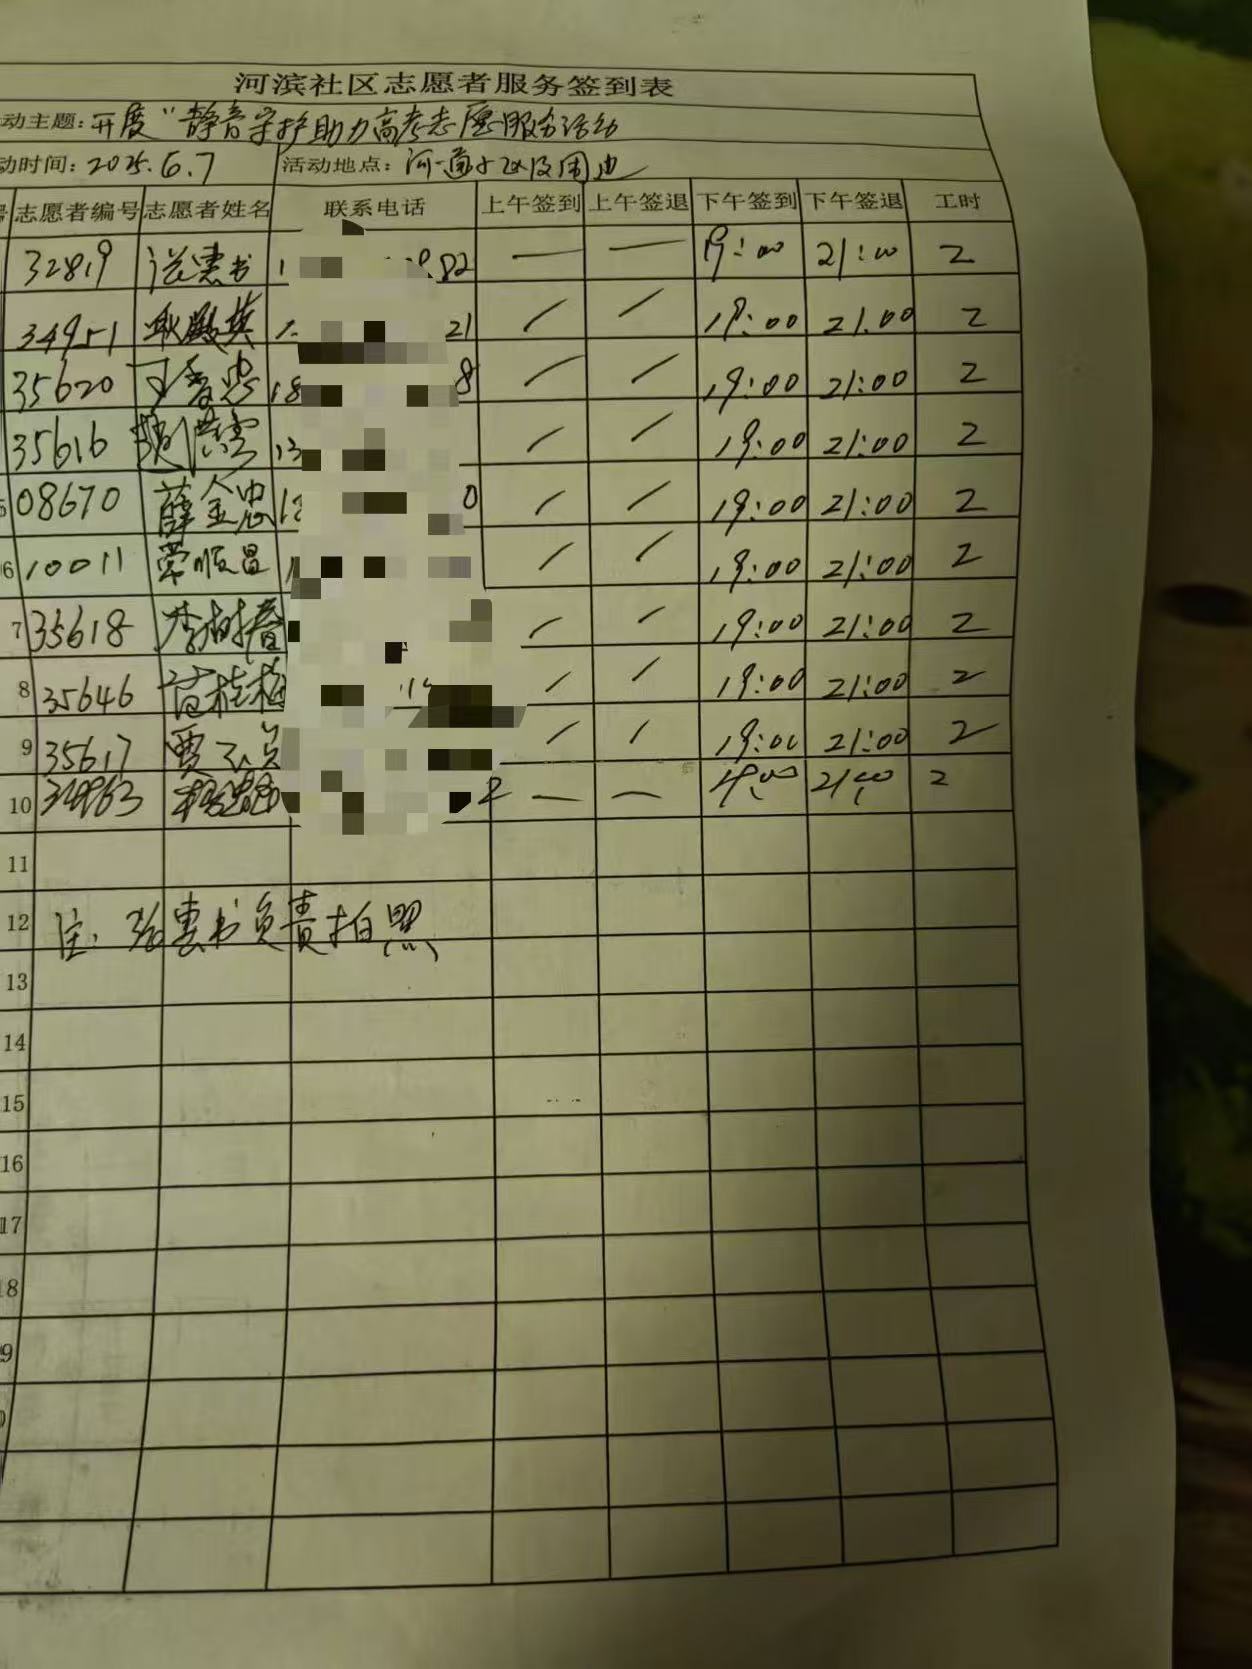 河滨社区志愿者服务签到表
动主题：开展“静音守护助力高考志愿服务活动
动时间：2025.6.7 活动地点：河滨社区及周边
志愿者编号 志愿者姓名 联系电话 上午签到 上午签退 下午签到 下午签退 工时
32819 惠书 82 — — 19:00 21:00 2
34951 21 / / 19:00 21:00 2
35620 18 8 / / 19:00 21:00 2
35616 13 / / 19:00 21:00 2
08670 薛金忠 0 / / 19:00 21:00 2
6 10011 常顺昌 1 / / 19:00 21:00 2
7 35618 李树春 / / 19:00 21:00 2
8 35646 苗桂梅 / / 19:00 21:00 2
9 35617 贾 / / 19:00 21:00 2
10 34863 2 — — 19:00 21:00 2
11
12 注：张惠书负责拍照
13
14
15
16
17
18
9
0